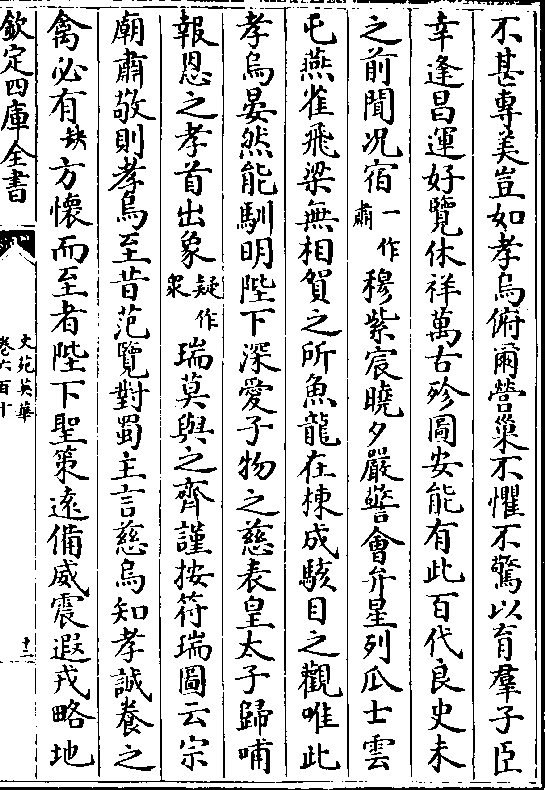 不甚專美豈如孝烏俯爾營巢不懼不驚以育羣子臣
幸逢昌運好覽休祥萬古殄圖安能有此百代良史未
之前聞况宿一作肅穆紫宸曉夕嚴警會弁星列瓜士雲
屯燕雀飛梁無相賀之所魚龍在揀成駭目之觀唯此
孝烏晏然能馴明陛下深愛子物之慈表皇太子歸哺
報恩之孝首出象疑作衆瑞莫與之齊謹按符瑞圖云宗
廟肅敬則孝烏至昔范覽對蜀主言慈烏知孝誠養之
禽必有缺方懷而至者陛下聖策遠備威震遐戎略地
欽定四庫全書
文苑英華
卷六百十
十二